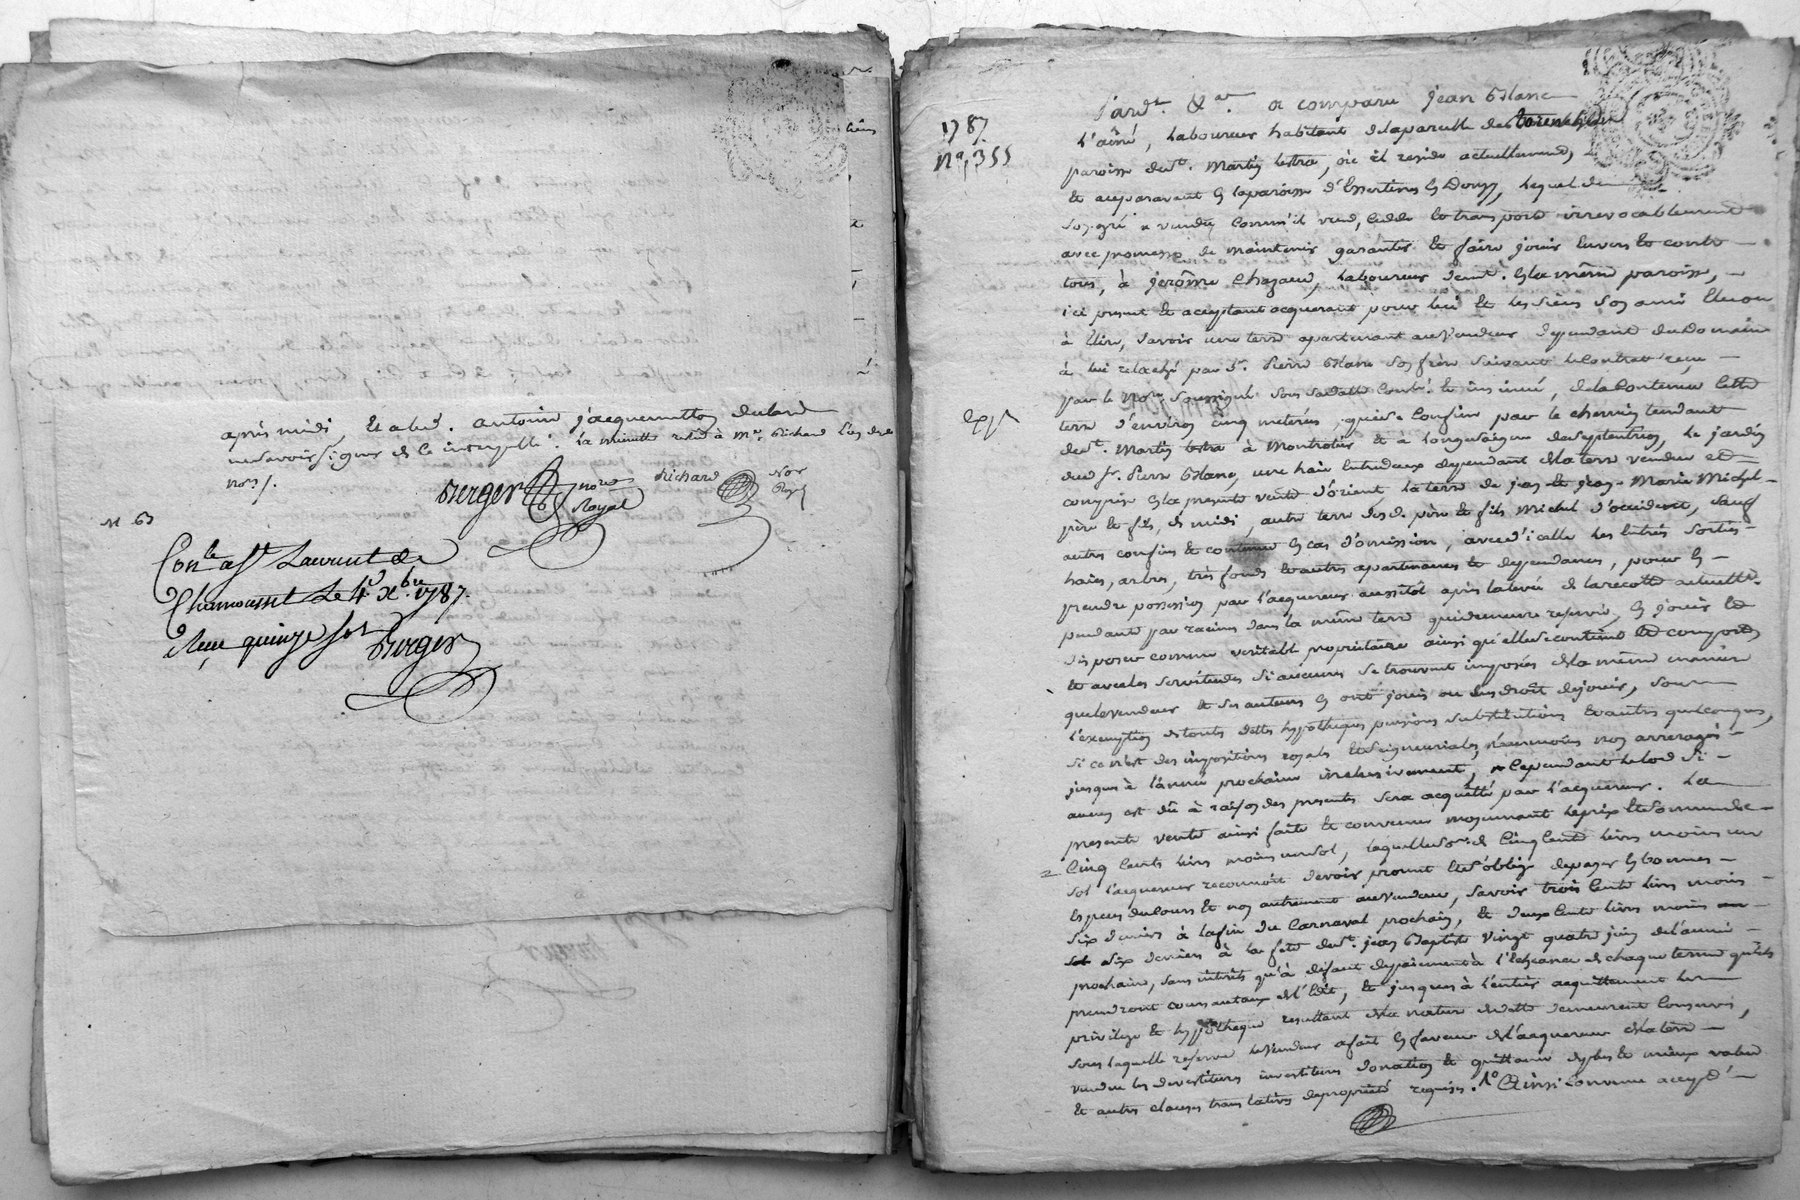 après midi, et a led. antoine jacquemetton declaré
ne savoir signer de ce interpellé. la minute resté à Me. Richard l'un des
nores /.
Berger nore Royal
Richard Nore Royal
N. 63
Conle. a St Laurent de
Chamousset Le 4e. Xbre 1787.
Reçu quinze sols Berger
1787.
No. 355
exp.
Pardt. &a. a comparu jean Blanc
L'ainé, Laboureur habitant
paroisse de St. Martin lestra, où il reside actuellement,
et auparavant en la paroisse d'Essertines en Donzy, lequel de
son gré a vendu comm'il vend, cedde et transporte irrevocablement
avec promesse de maintenir garantir et faire jouir envers et contre
tous, à jerôme Chazaud, Laboureur demt. en la même paroisse,
ici present et acceptant acquerant pour lui et les siens son ami elu ou
à Elire, savoir une terre apartenant au vendeur dependant du Domaine
à lui relaché par Sr. Pierre Blanc son frère suivant le contrat reçu
par le nore. soussigné sous sa datte controllé et insinué, de la contenue laditte
terre d'environ cinq meterées, qui se confine par le chemin tendant
de St. Martin lestra à Montrotier et à longueseigne de septentrion, le jardin
dud. Sr. Pierre Blanc, une haie entredeux dependant de la terre vendue et
comprise en la presente vente d'orient, la terre de jean et jean-Marie Michel
père et fils, de midi, autre terre desd. père et fils Michel d'occident, sauf
autres confins et contenue en cas d'omission, avec d'icelle ses entrées sorties
haies, arbres, très fonds et autres apartenances et dependances, pour en
prendre possession par l'acquereur aussitôt après la levée de la recolte actuelle
pendante par racines dans la même terre qui demeure reservée, en jouir et
disposer comme veritable proprietaire ainsi qu'elle se contient et comporte
et avec les servitudes si aucunes se trouvent imposées de la même maniere
que le vendeur et ses auteurs en ont joui ou eu droit de jouir, sous
l'exemption de toutes dettes hypotheques pensions substitutions et autres quelconques,
si ce n'est des impositions royales et seigneuriales, neanmoins non arreragés
jusques à l'année prochaine inclusivement, cependant le lod si
aucun est dû à raison des presentes sera acquitté par l'acquereur. La
presente vente ainsi faite et convenue moyennant le prix et somme de
Cinq Cents livres moins un sol, laquelle some. de Cinq Cents livres moins un
sol l'acquereur reconnoit devoir promet et s'oblige de payer en bonnes
Especes du cours et non autrement au vendeur, savoir trois Cents livres moins
six deniers à la fin du Carnaval prochain, et deux Cents livres moins
six deniers à la fete de St. jean Baptiste vingt quatre juin de l'année
prochaine, sans interêts qu'à défaut de payement à l'Echeance de chaque terme qu'ils
prendront cours au taux de l'Edit, et jusques à l'entier acquittement les
privilege et hypotheque resultant de la nature de dette demeurent conservés,
sous laquelle reserve le vendeur a fait en faveur de l'acquereur de la terre
vendue les devestitures investitures donation et quittance de plus et mieux value
et autres clauses translatives de propriété requises. Ainsi convenu accepté